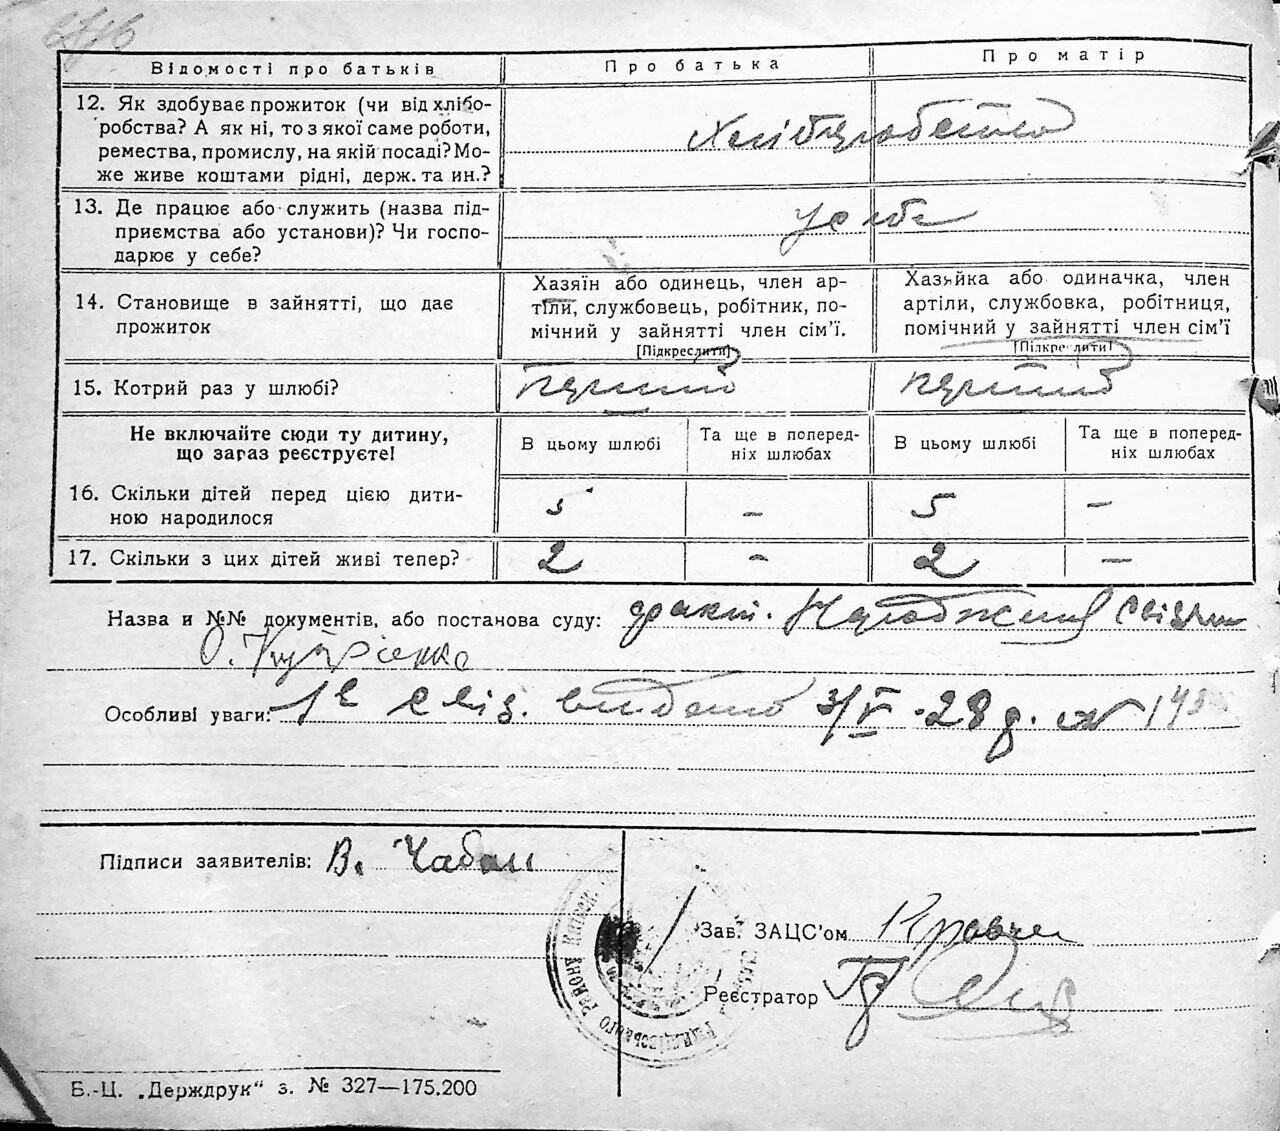 Відомості про батьків
Про батька
Про матір
12. Як здобуває прожиток (чи від хлібо-
робства? А як ні, то з якої саме роботи,
ремества, промислу, на якій посаді? Мо-
же живе коштами рідні, держ. та ин.?
Хліборобство
13. Де працює або служить (назва під-
приємства або установи)? Чи госпо-
дарює у себе?
у себе
14. Становище в зайнятті, що дає
прожиток
Хазяїн або одинець, член ар-
тіли, службовець, робітник, по-
мічний у зайнятті член сім'ї.
[Підкреслити]
Хазяйка або одиначка, член
артіли, службовка, робітниця,
помічний у зайнятті член сім'ї
[Підкреслити]
15. Котрий раз у шлюбі?
перший
перший
Не включайте сюди ту дитину,
що зараз реєструєте!
В цьому шлюбі
Та ще в поперед-
ніх шлюбах
В цьому шлюбі
Та ще в поперед-
ніх шлюбах
16. Скільки дітей перед цією дити-
ною народилося
5
–
5
–
17. Скільки з цих дітей живі тепер?
2
–
2
–
Назва и №№ документів, або постанова суду:
Особливі уваги: видано 3/V-28 р.
Підписи заявителів: В. Чабан
Зав. ЗАЦС'ом
Реєстратор
Б.-Ц. „Держдрук" з. № 327—175.200